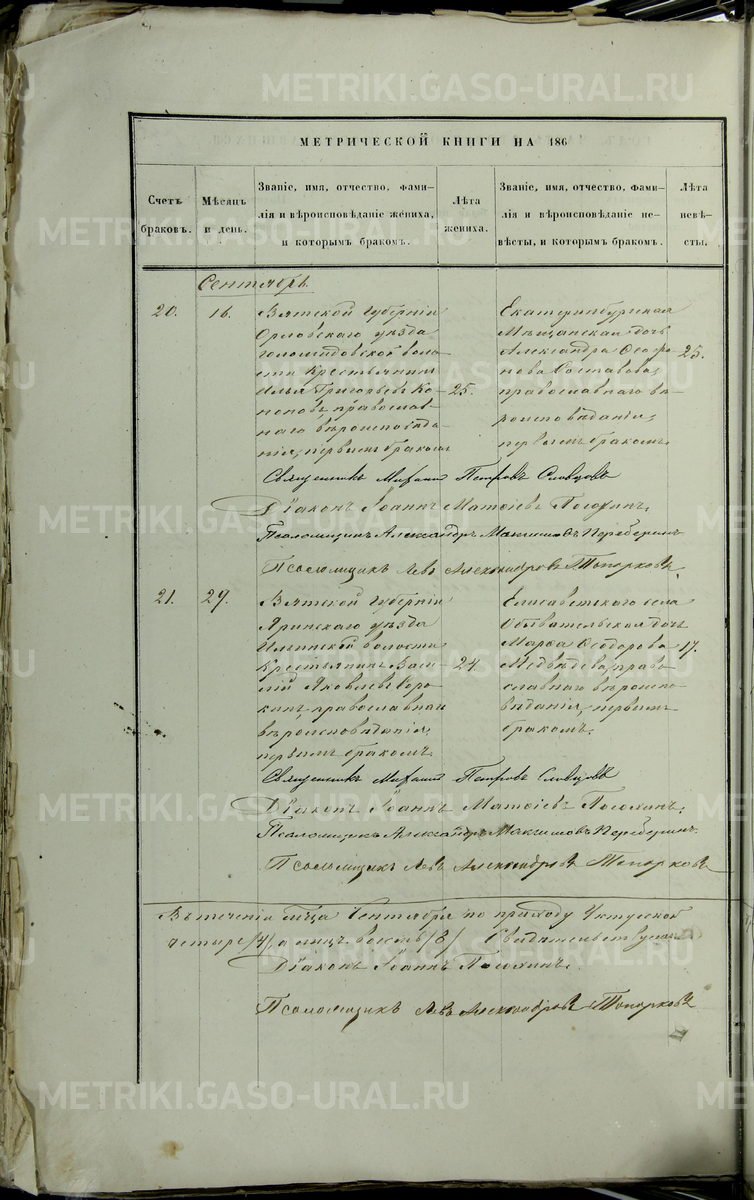 МЕТРИЧЕСКОЙ КНИГИ НА 186
Счетъ браковъ.
Мѣсяцъ и день.
Званіе, имя, отчество, фами-
лія и вѣроисповѣданіе жениха,
и которымъ бракомъ.
Лѣта жениха.
Званіе, имя, отчество, фами-
лія и вѣроисповѣданіе не-
вѣсты, и которымъ бракомъ.
Лѣта невѣ-
сты.
Сентябрь
20.
16.
Вятской Губерніи
Орловскаго уѣзда
воло-
сти Крестьянинъ
Илья Григорьевъ Ко-
православ-
наго вѣроисповѣда-
нія, первымъ бракомъ
25.
Екатеринбургская
Мѣщанская дочь
Александра
православнаго вѣ-
роисповѣданія,
первымъ бракомъ.
25.
Священникъ Михаилъ Петровъ Словцовъ
Діаконъ Іоаннъ Матѳіевъ
Псаломщикъ Александръ Максимовъ Переберинъ
Псаломщикъ Левъ Александровъ Топорковъ
21.
29.
Вятской Губерніи
Яринскаго уѣзда
волости
Крестьянинъ Васи-
лій Яковлевъ
православнаго
вѣроисповѣданія,
первымъ бракомъ.
24.
Елисаветскаго села
Обывательская дочь
Марѳа Ѳеодорова
Медвѣдева, право-
славнаго вѣроиспо-
вѣданія, первымъ
бракомъ.
17.
Священникъ Михаилъ Петровъ Словцовъ
Діаконъ Іоаннъ Матѳіевъ
Псаломщикъ Александръ Максимовъ Переберинъ.
Псаломщикъ Левъ Александровъ Топорковъ
Въ теченіи мѣсяца Сентября по приходу Уктусской
четыре /4/, а лицъ восемь /8/
Діаконъ Іоаннъ
Псаломщикъ Левъ Александровъ Топорковъ
METRIKI.GASO-URAL.RU